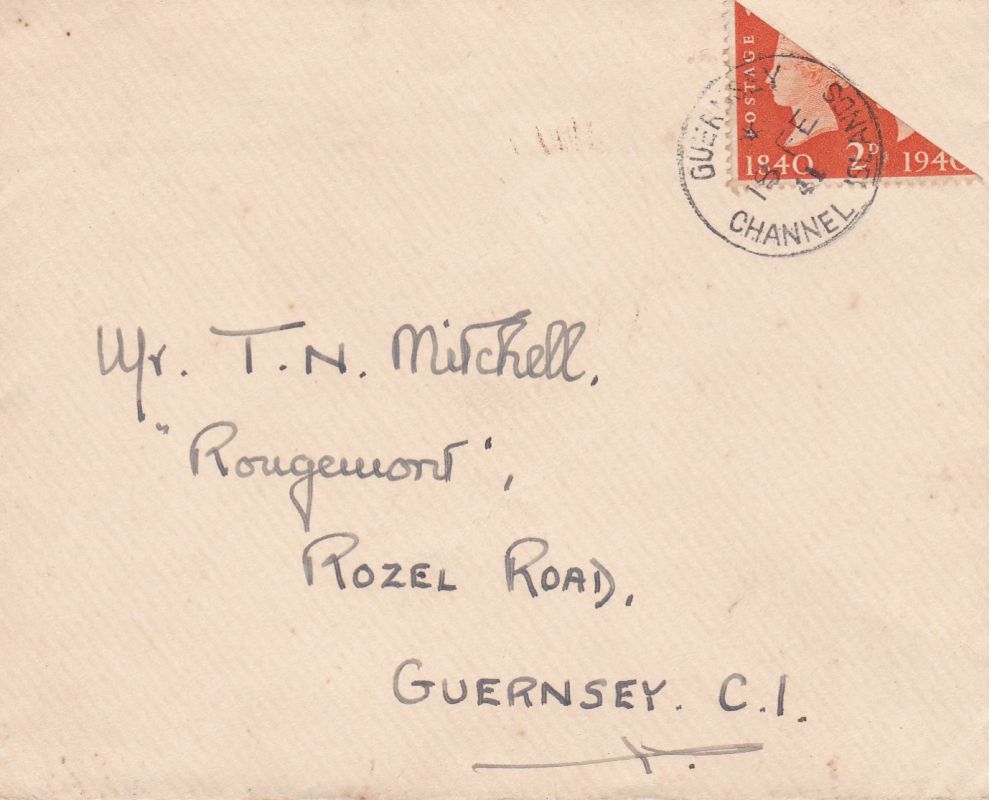 POSTAGE
1840 2D 1940
GUERNSEY
CHANNEL ISLANDS
FE
41
Mr. T. N. Mitchell,
"Rougemont",
ROZEL ROAD,
GUERNSEY. C.I.